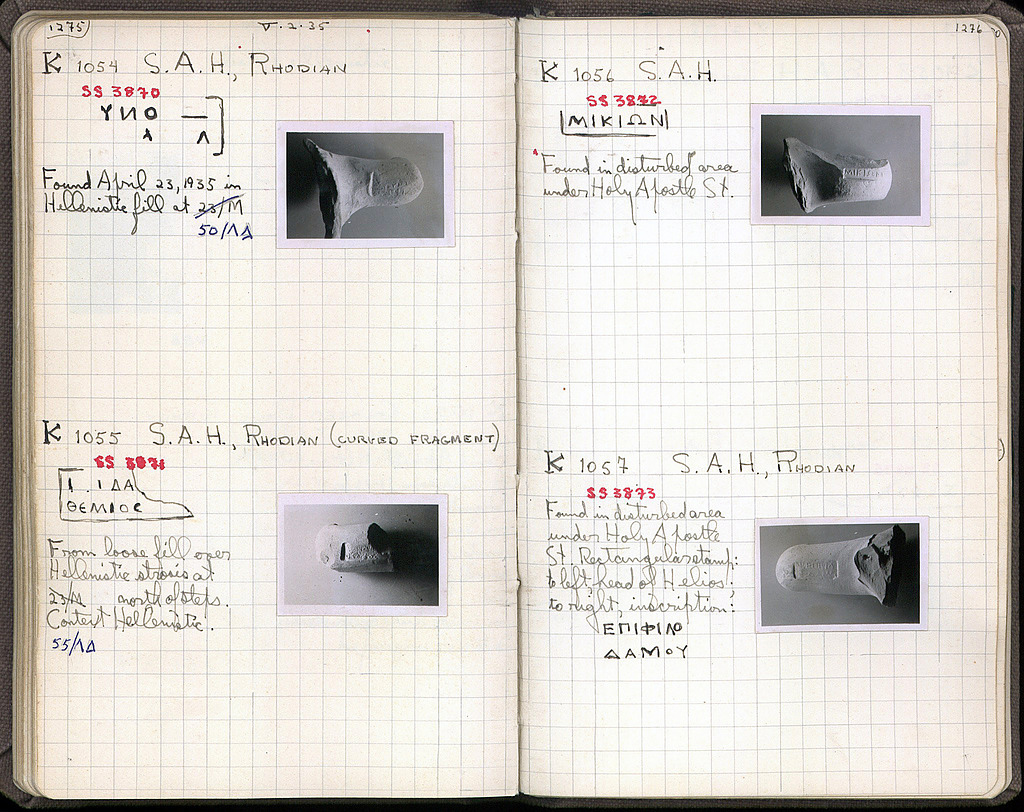 1275
V·2·35
K 1054 S.A.H., RHODIAN
SS 3870
ΥΝΟ —
Λ Λ
Found April 23, 1935 in
Hellenistic fill at 23/Μ
50/ΛΔ
K 1055 S.A.H., RHODIAN (CURVED FRAGMENT)
SS 3871
Γ . ΙΔΑ
ΘΕΜΙΟC
From loose fill over
Hellenistic strosis at
23/Λ north of steps.
Context Hellenistic.
55/ΛΔ
1276
K 1056 S.A.H.
SS 3872
ΜΙΚΙΩΝ
Found in disturbed area
under Holy Apostle St.
ΜΙΚΙΩΝ
K 1057 S.A.H., RHODIAN
SS 3873
Found in disturbed area
under Holy Apostle
St. Rectangular stamp:
to left head of Helios:
to right, inscription:
ΕΠΙΦΙΛΟ
ΔΑΜΟΥ